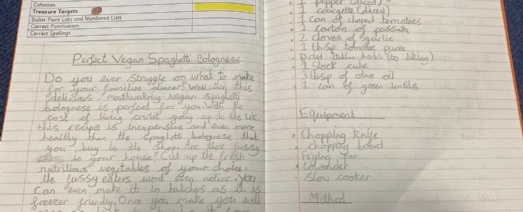 Cohesion
Treasure Targets
Bullet Point Lists and Numbered Lists
Correct Punctuation
Correct Spellings
Perfect Vegan Spaghetti Bolognese
Do you ever struggle on what to make
for your families dinner? Well try this
delicious, mouthwatering vegan spaghetti
bolognese is perfect for you. With the
cost of living crisis going up in the UK
this recipe is inexpensive and even more
healthy then the spagetti bolognese that
you buy in the shop. Are their fussy
in your house? Cut up the fresh
nutritious vegetables of your choice
the fussy eaters wont even notice. You
can even make it in batches as it is
freezer friendly. Once you make you will
1 pepper (diced)
1 courgette (diced)
1 can of chopped tomatoes
1 carton of passata
2 cloves of garlic
1 tbsp tomatoe puree
Dried Italian herbs (to liking)
1 stock cube
3 tbsp of olive oil
1 can of green lentils
Equipment
Chopping Knife
chopping board
Frying Pan
Colander
Slow cooker
Method